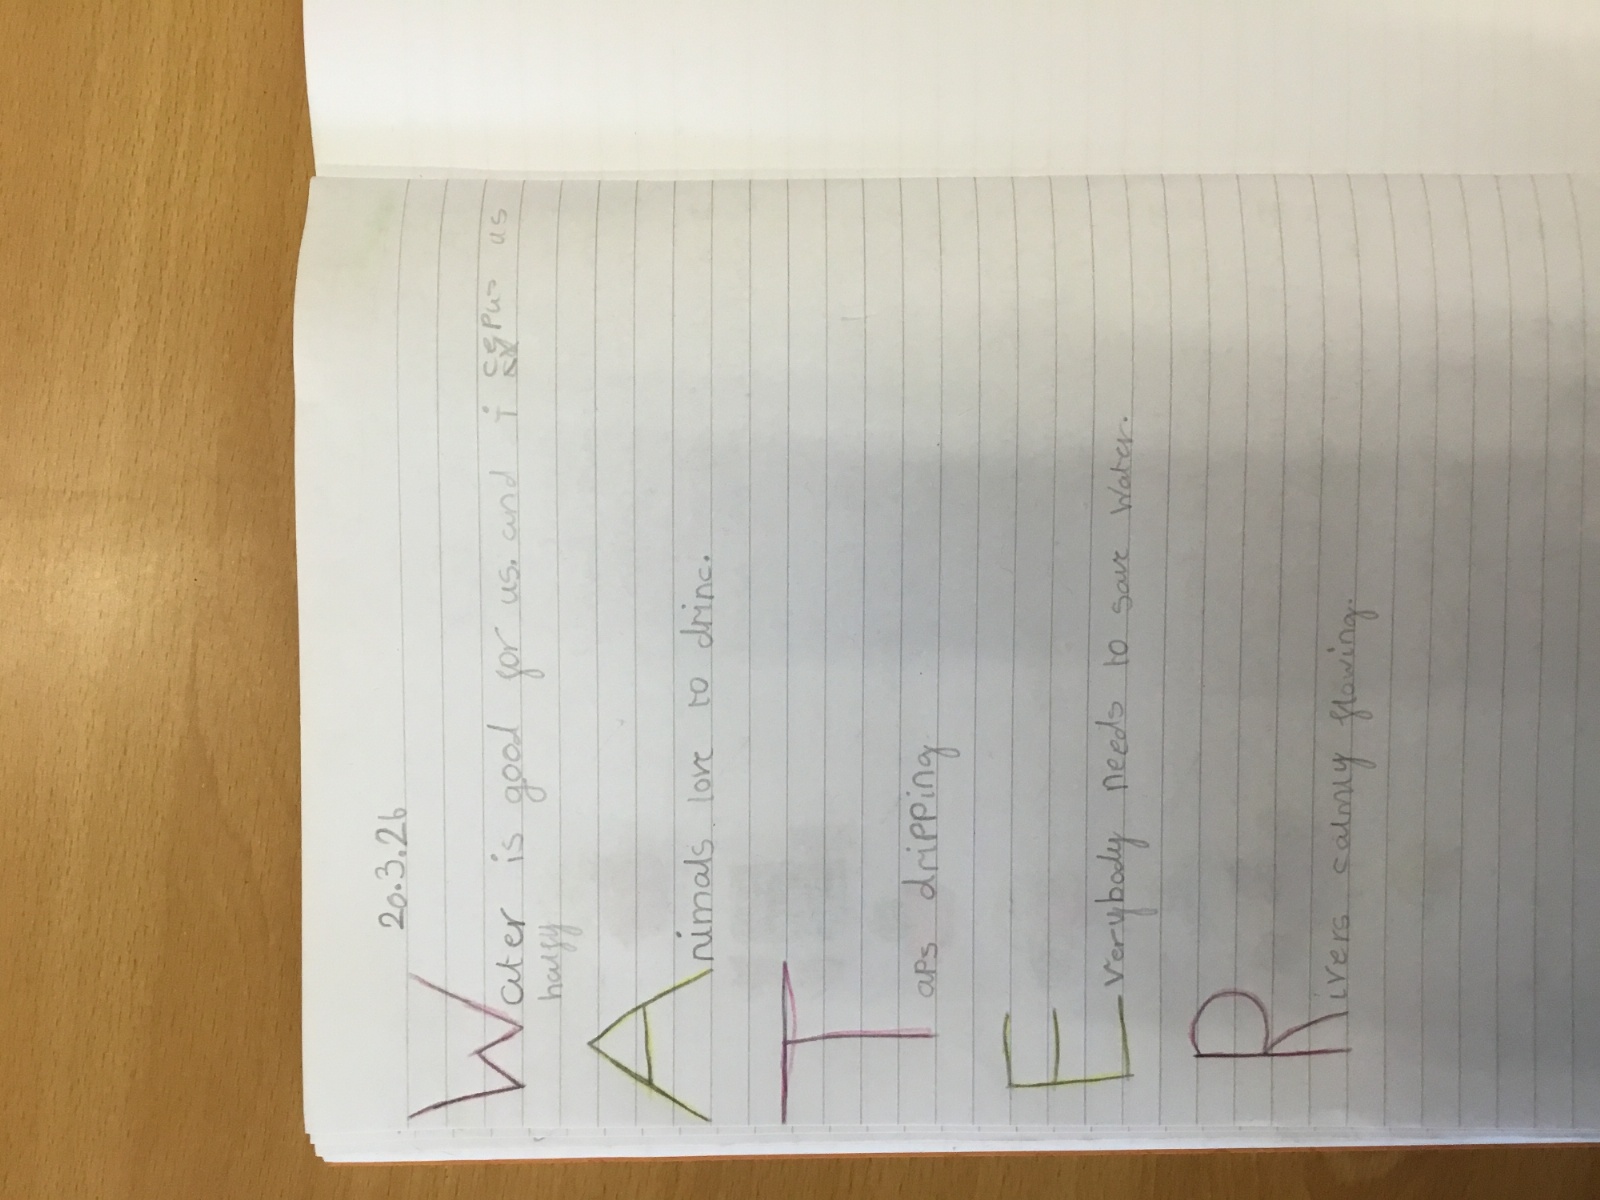 20.3.26
Water is good for us. and i us
halfy
Animals love to drinc.
Taps dripping
Everybody needs to save water.
Rivers calmly flowing.